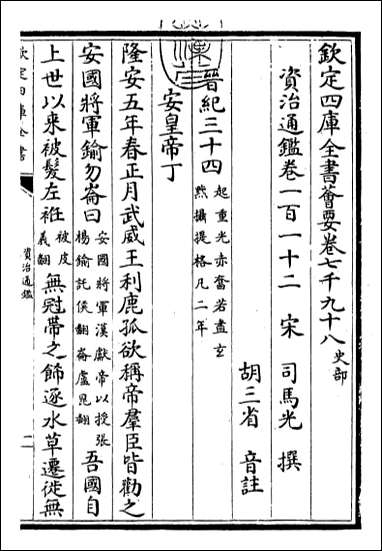 欽定四庫全書薈要卷七千九十八史部
資治通鑑卷一百一十二 宋 司馬光 撰
胡三省 音註
晉紀三十四起重光赤奮若盡玄黓攝提格凡二年
安皇帝丁
隆安五年春正月武威王利鹿孤欲稱帝羣臣皆勸之
安國將軍鍮勿崙曰安國將軍漢獻帝以授張楊鍮託侯翻崙盧昆翻吾國自
上世以來被髮左袵被皮義翻無冠帶之飾逐水草遷徙無
欽定四庫全書
資治通鑑